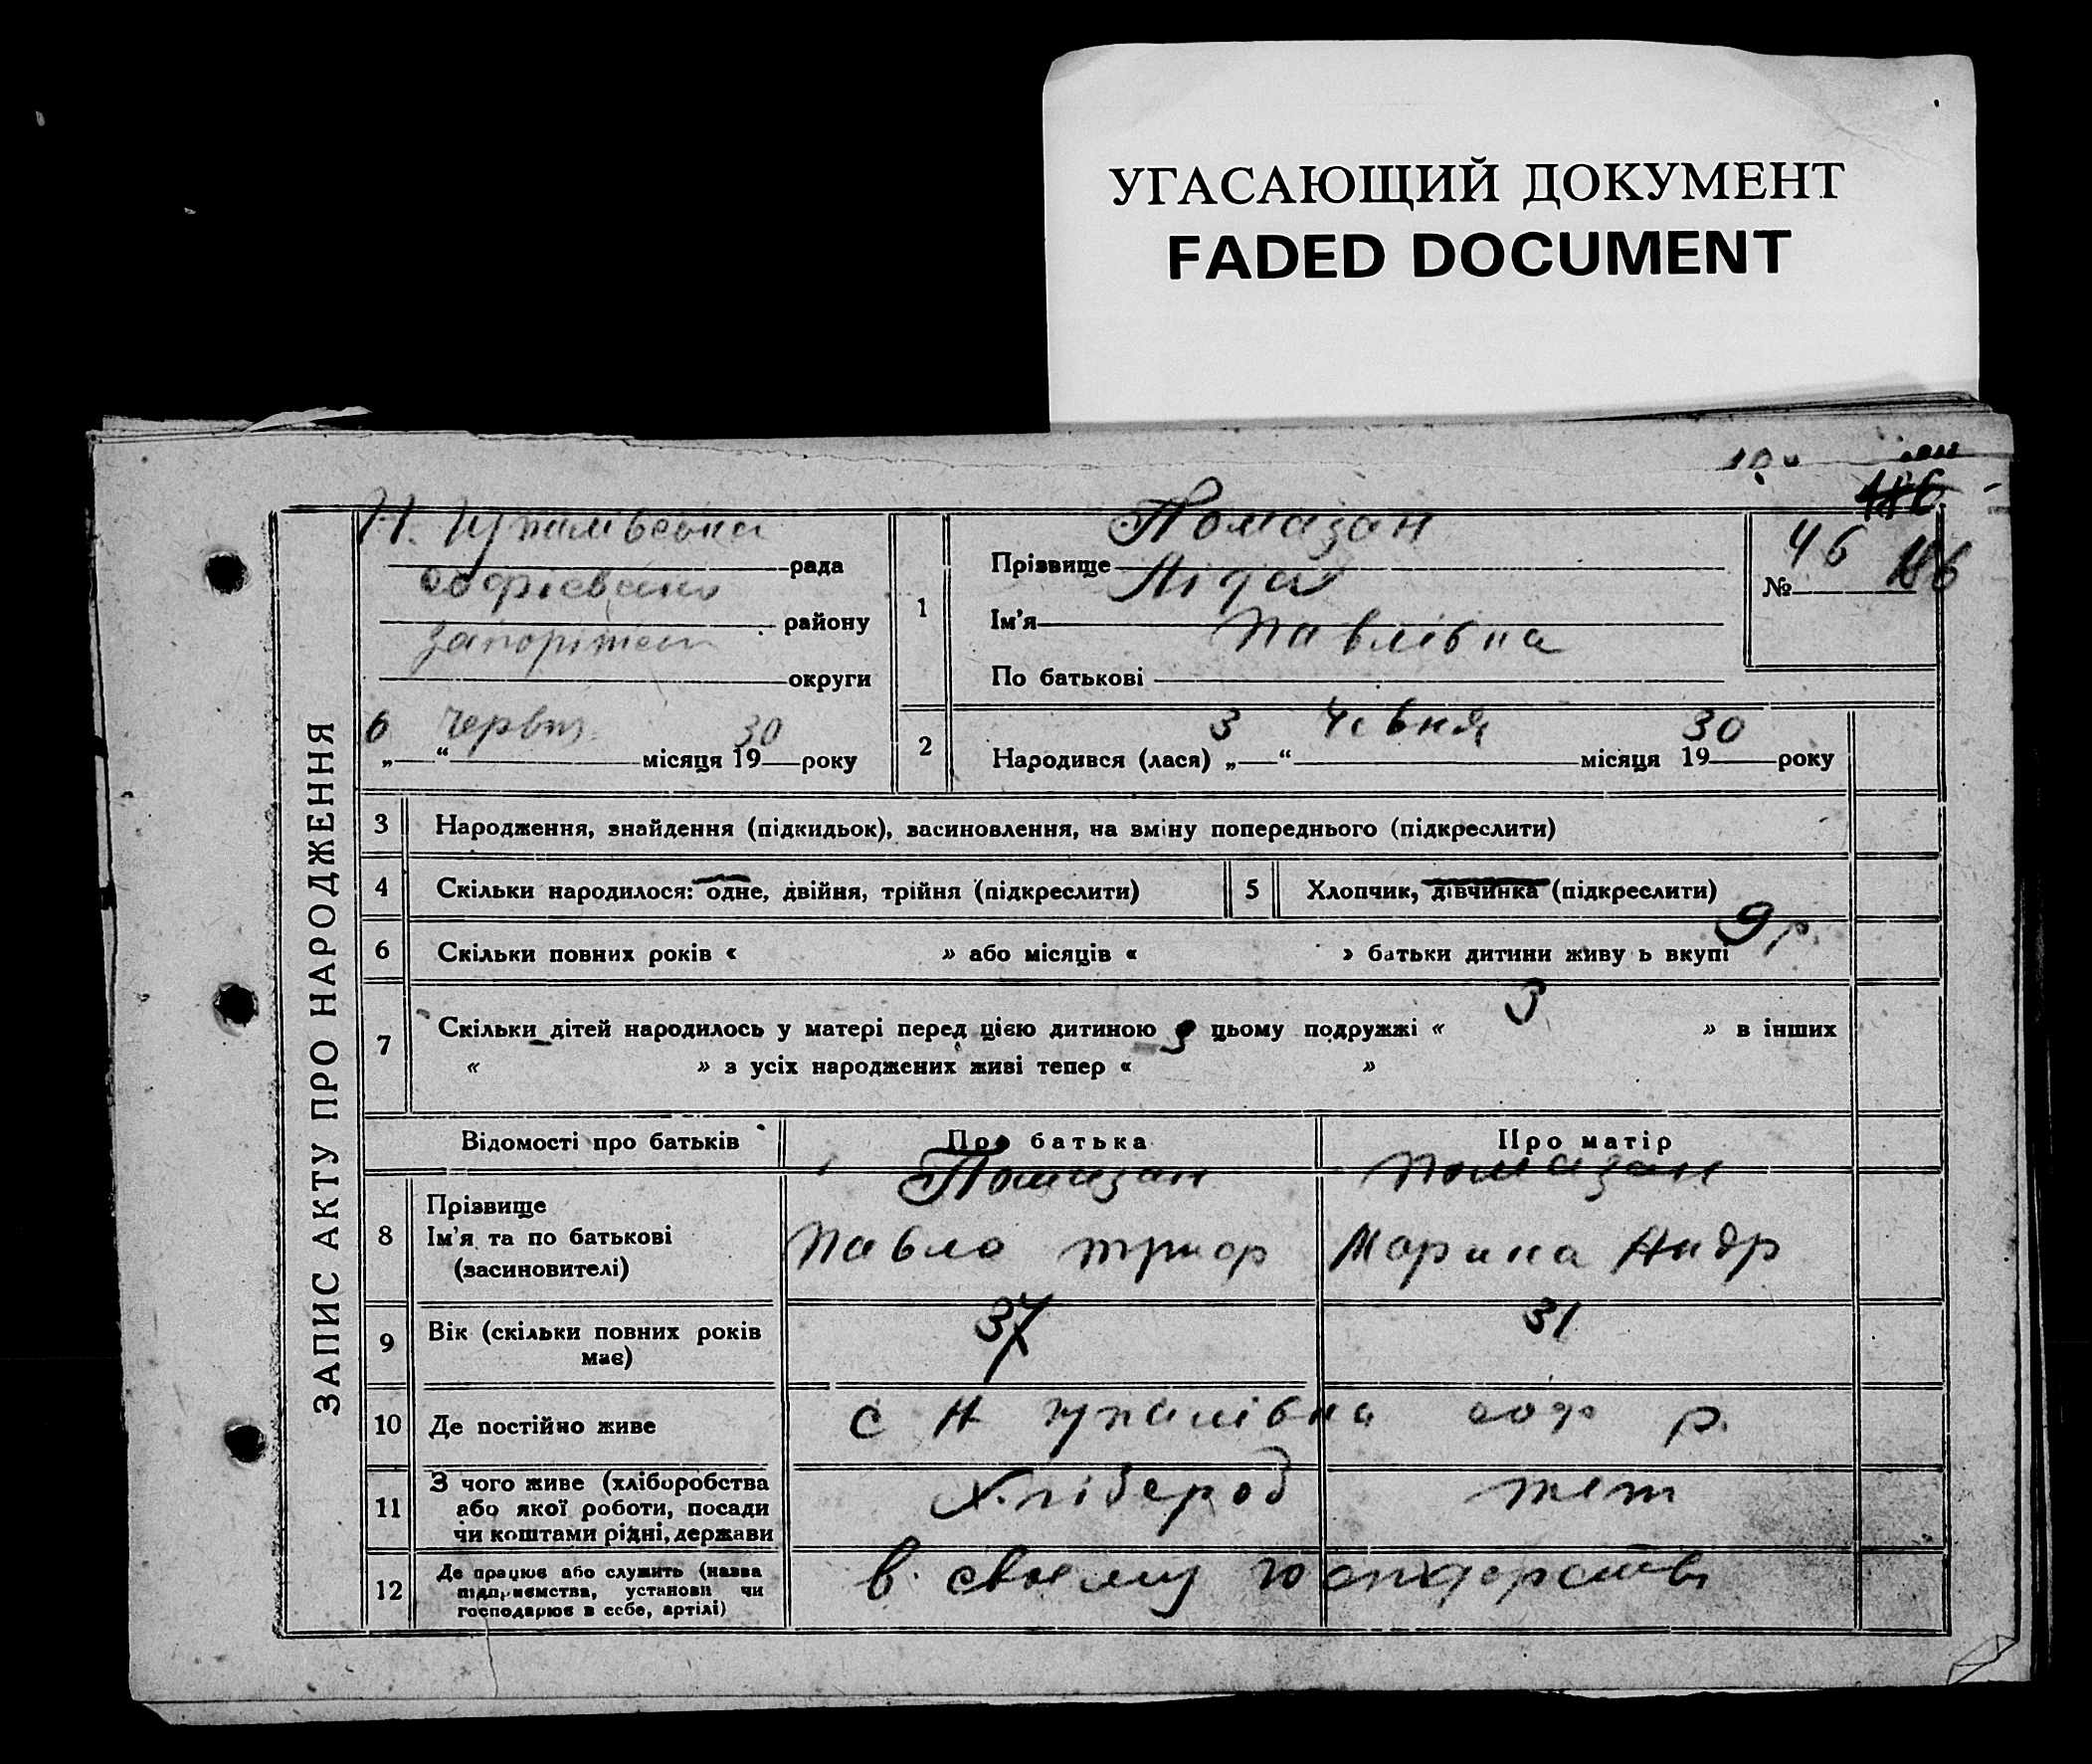 УГАСАЮЩИЙ ДОКУМЕНТ
FADED DOCUMENT
ЗАПИС АКТУ ПРО НАРОДЖЕННЯ
Н. рада
району
округи
6 „ “ червня місяця 1930 року
1
Прізвище Помазан
Ім'я Ліда
По батькові Павлівна
№ 46
2 Народився (лася) „3“ місяця 1930 року
3 Народження, знайдення (підкидьок), засиновлення, на зміну попереднього (підкреслити)
4 Скільки народилося: одне, двійня, трійня (підкреслити)
5 Хлопчик, дівчинка (підкреслити)
6 Скільки повних років « » або місяців « » батьки дитини живуть вкупі 9 р.
7 Скільки дітей народилось у матері перед цією дитиною цьому подружжі « 3 » в інших
« » з усіх народжених живі тепер « »
Відомості про батьків Про батька Про матір
8 Прізвище Помазан Помазан
Ім'я та по батькові Павло Марина Андр
(засиновителі)
9 Вік (скільки повних років 37 31
має)
10 Де постійно живе с Н р.
11 З чого живе (хліборобства
або якої роботи, посади
чи коштами рідні, держави
12 Де працює або служить (назва
підприємства, установи чи
господарює в себе, артілі)
в своєму